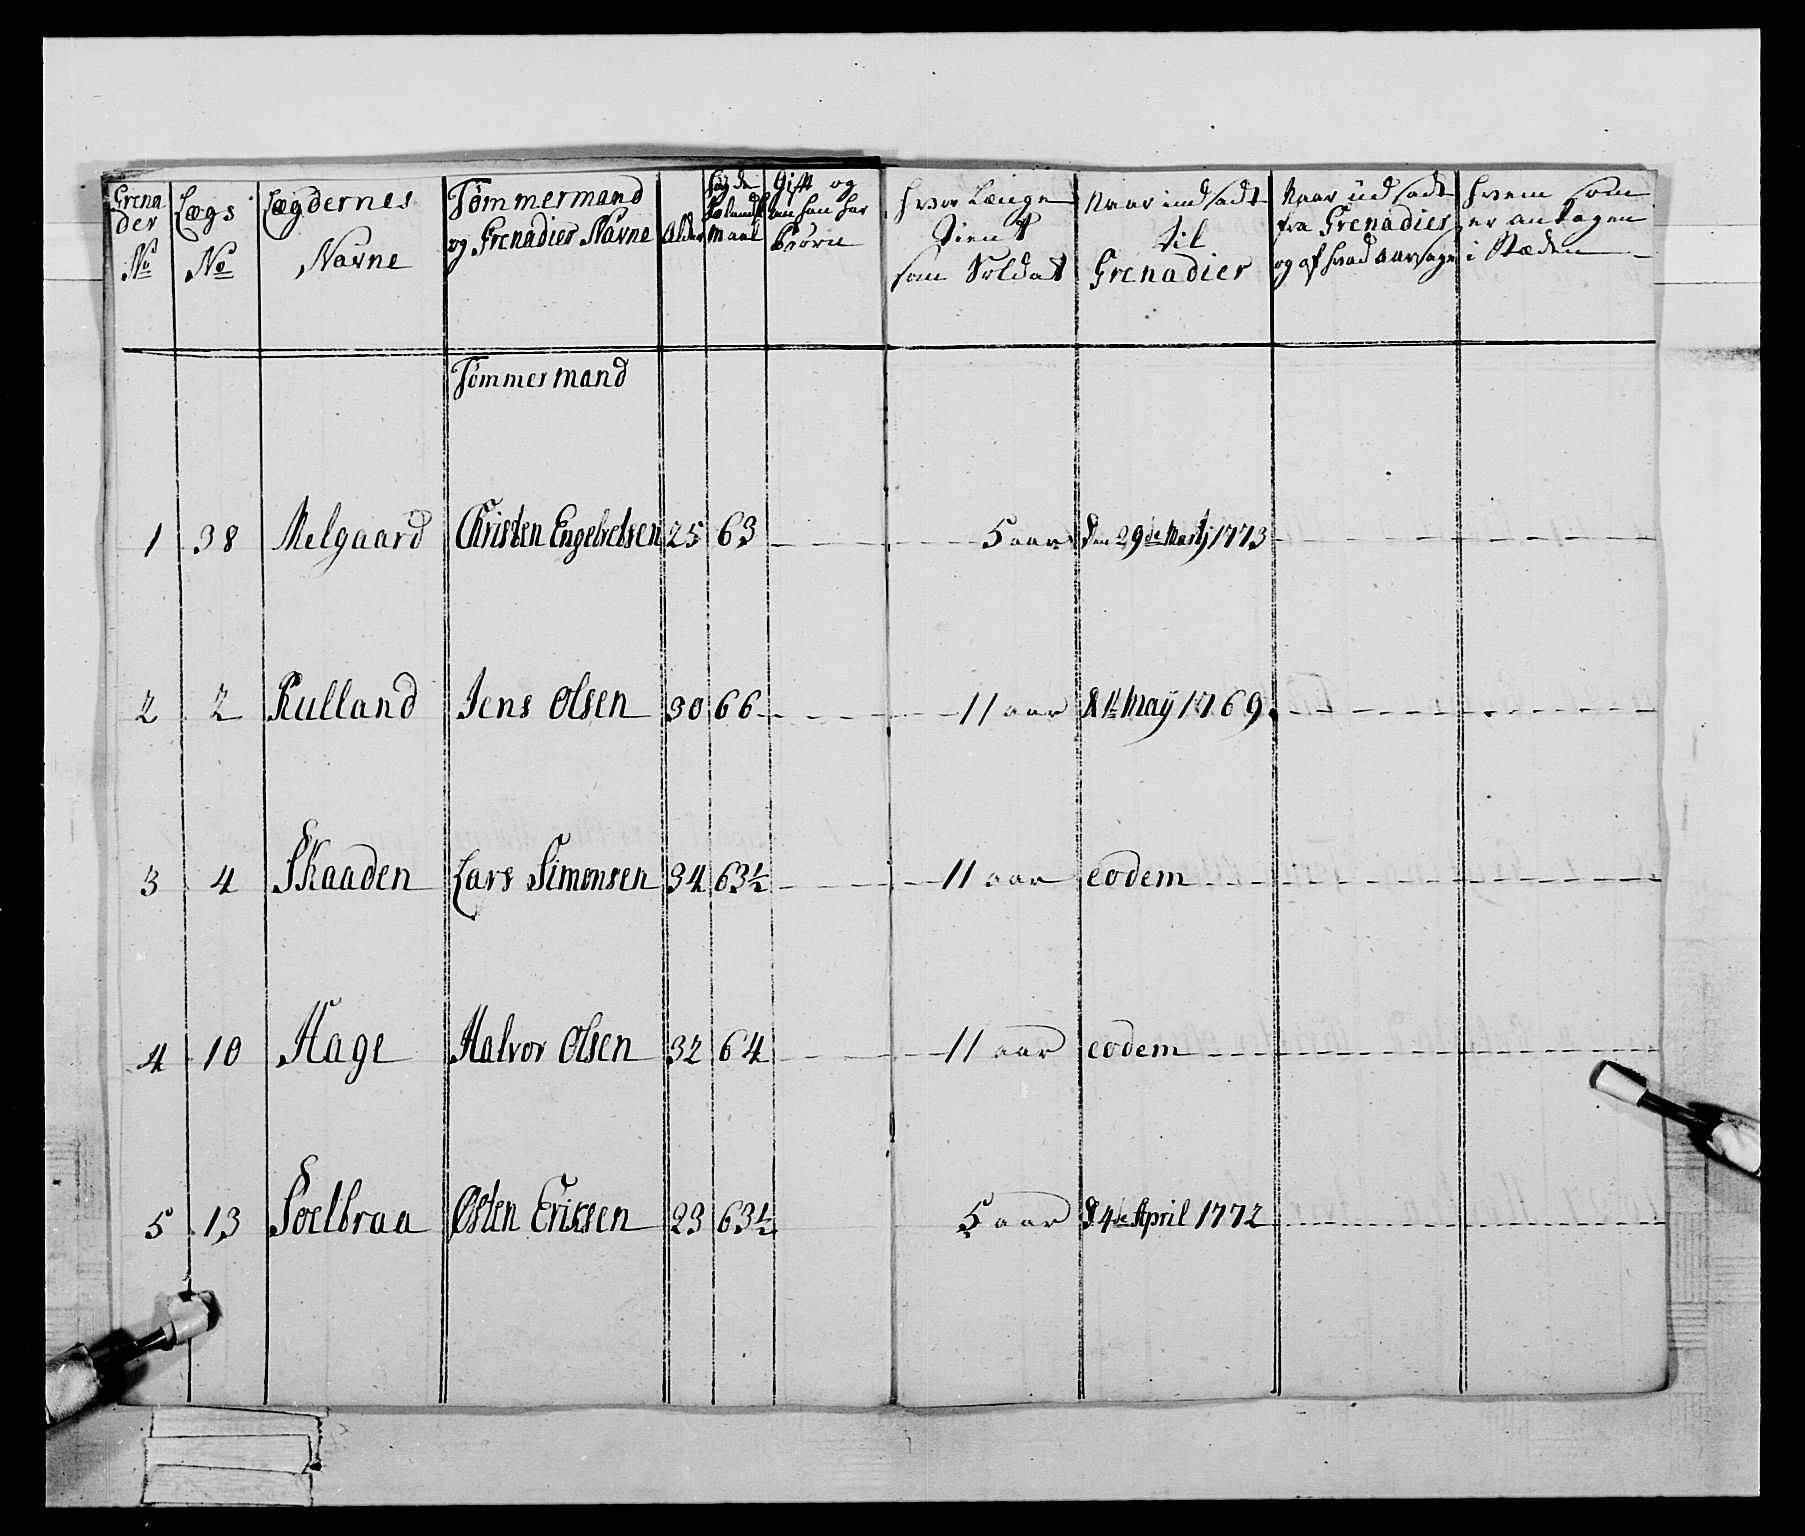 Grena
der
No
Lægs
No
Lægdernes
Navne
Tømmermand
og Grenadier Navne
Alder
Høyde
Sælands
Maal
Gift og
om han har
Børn
Hvor Længe
Tient
som Soldat
Naar indsadt
til
Grenadier
Naar udsadt
fra Grenadier
og af hvad Aarsage
Hvem som
er antagen
i Stæden
Tømmermand
1 38 Melgaard Christen Engebretsen 25 63 5 aar den 29de Martj 1773
2 2 Rulland Jens Olsen 30 66 11 aar d 1te Maÿ 1769
3 4 Skaaden Lars Simensen 34 63½ 11 aar eodem
4 10 Hage Halvor Olsen 32 64 11 aar eodem
5 13 Soelbraa Østen Erissen 23 63½ 5 aar d 4de April 1772